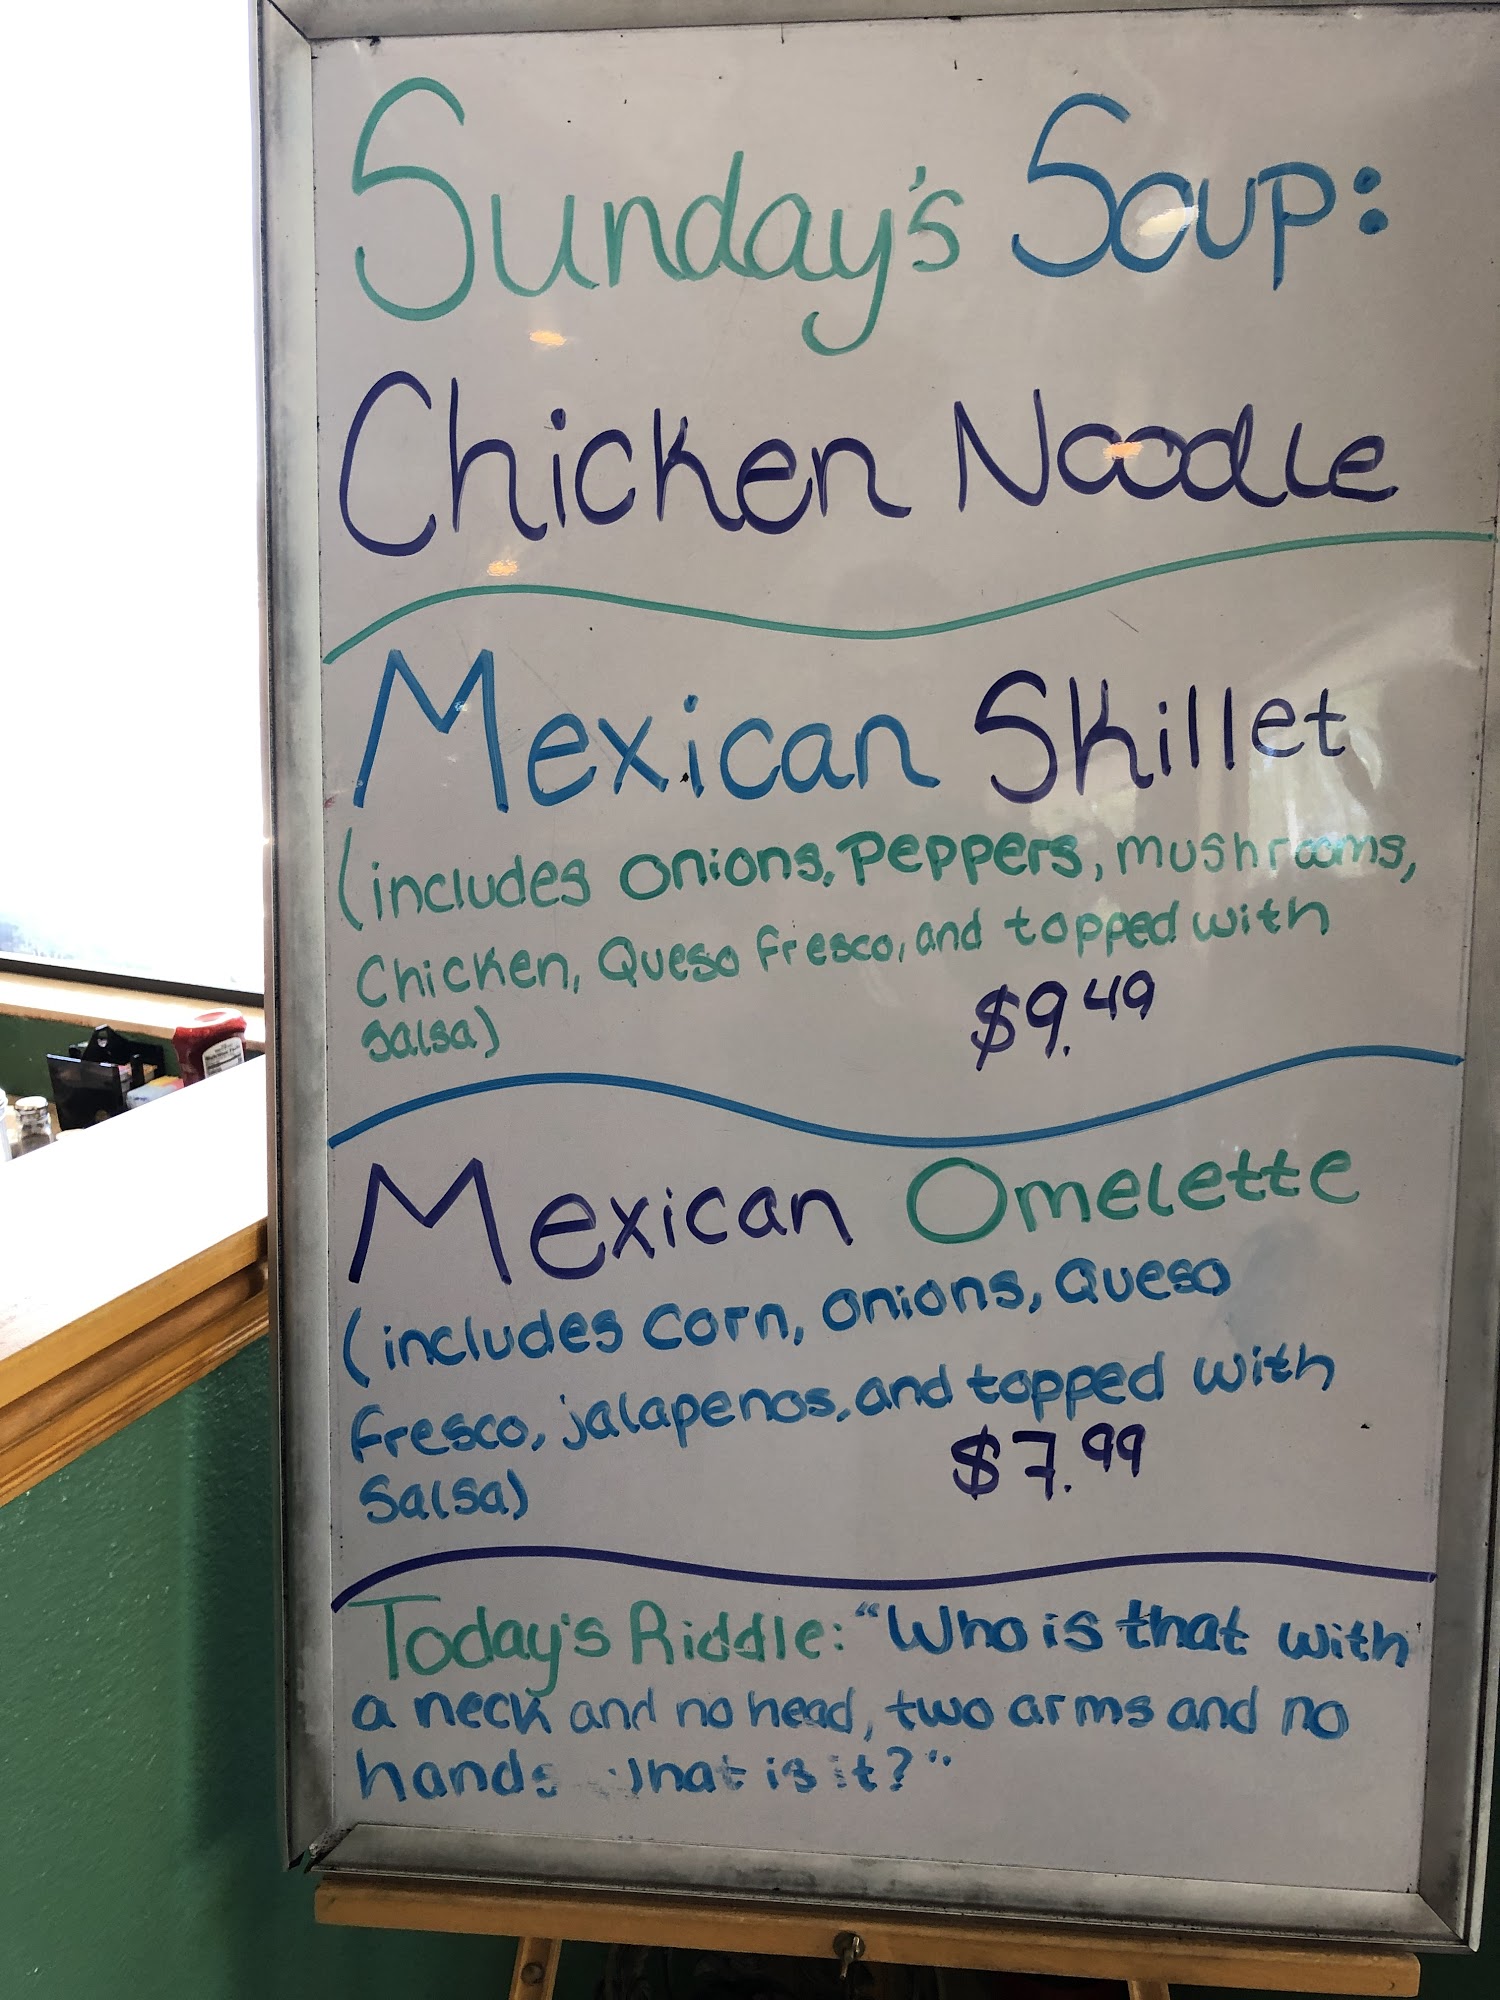 Sunday's Soup:
Chicken Noodle
Mexican Skillet
(includes onions, Peppers, mushrooms,
Chicken, Queso fresco, and topped with
Salsa)
$9.49
Mexican Omelette
(includes corn, onions, Queso
fresco, jalapenos, and topped with
Salsa)
$7.99
Today's Riddle: "Who is that with
a neck and no head, two arms and no
hands what is it?"